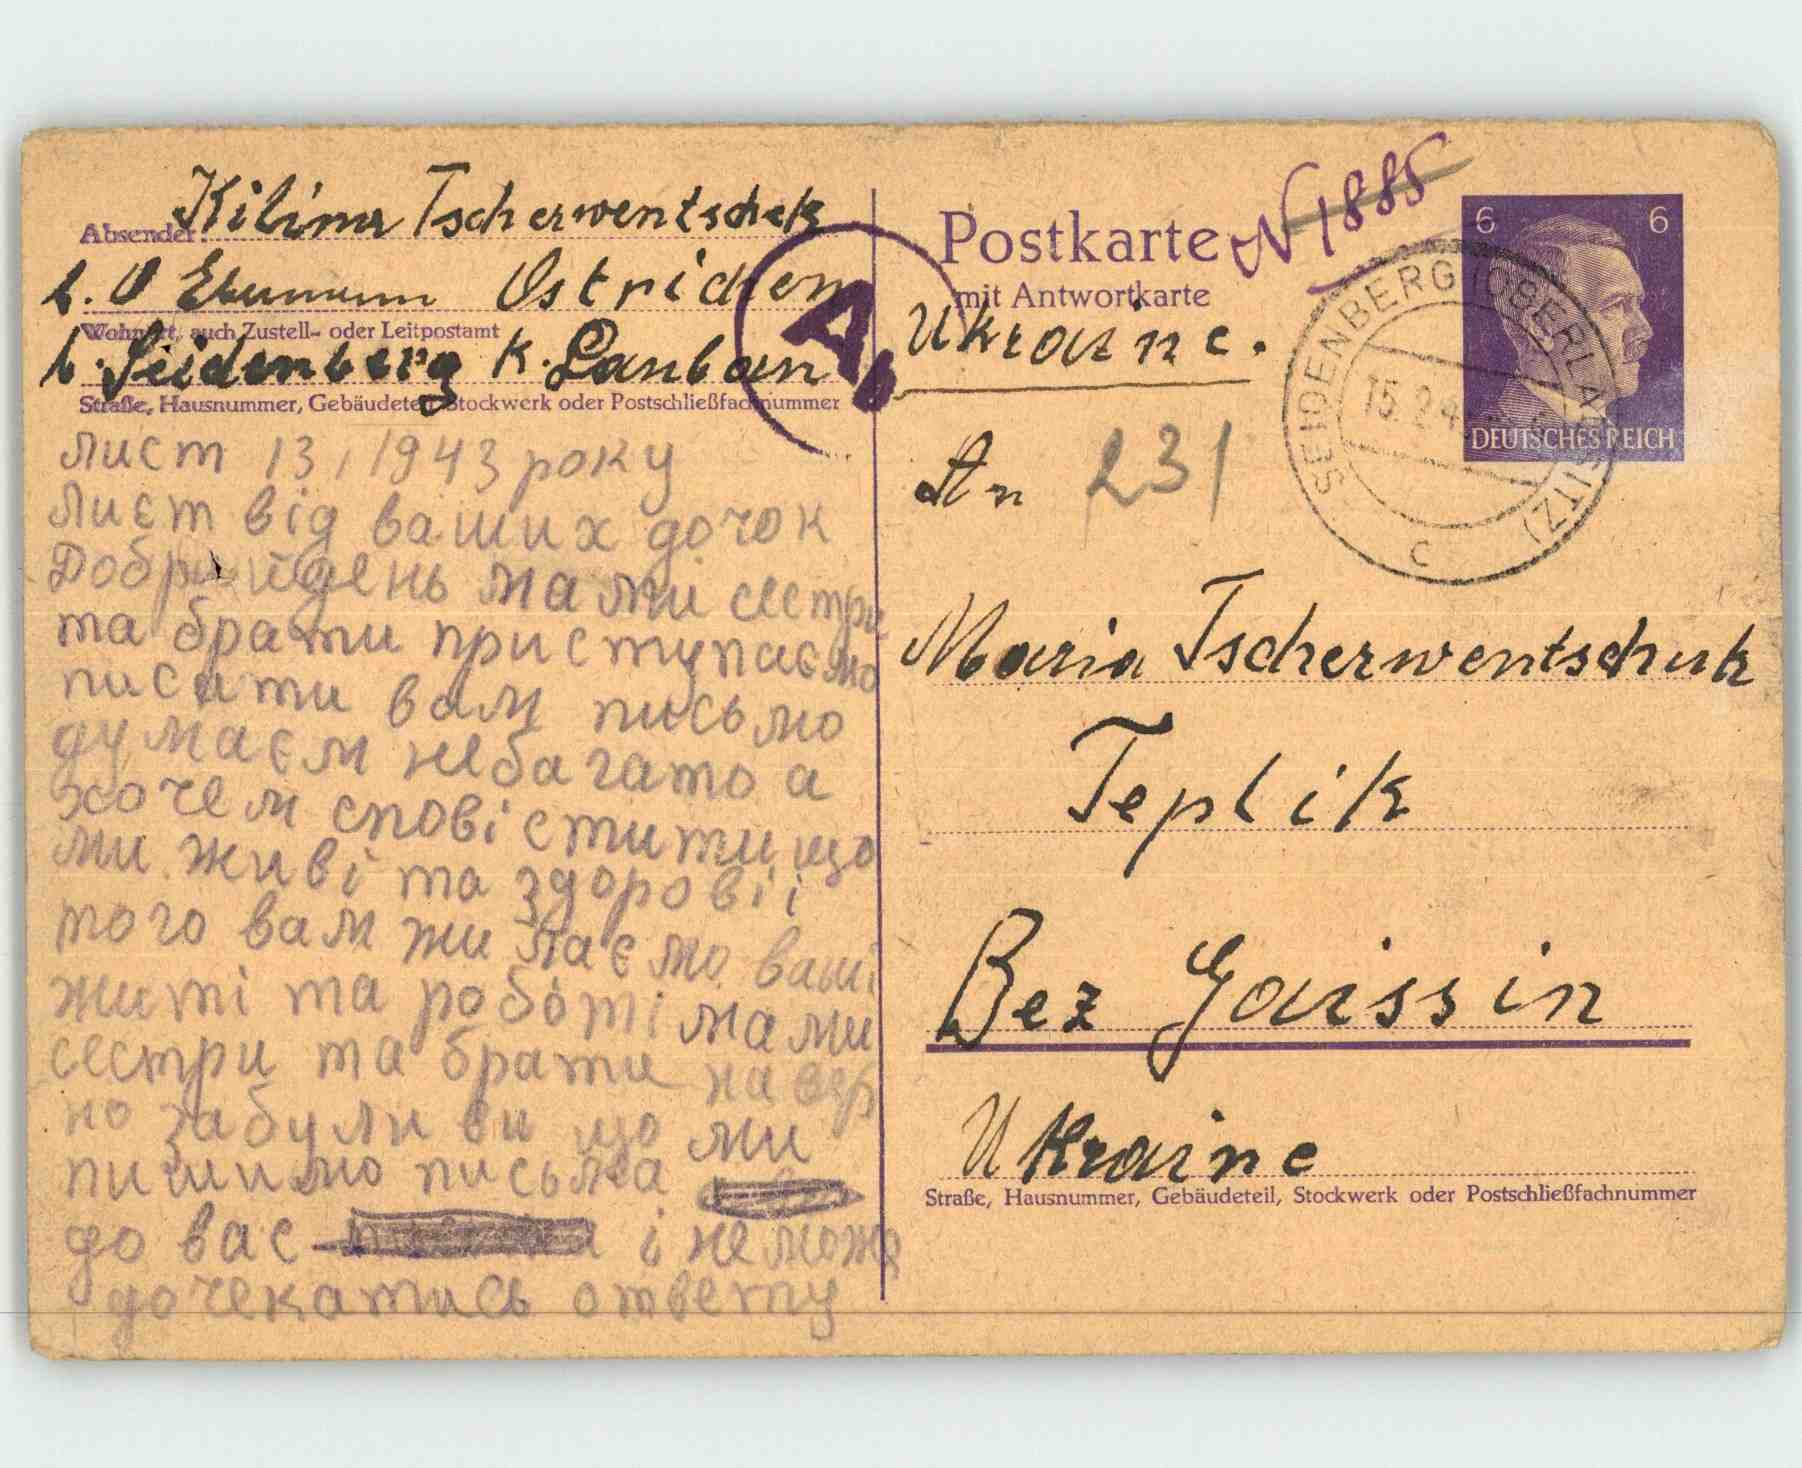 Absender:
Kilina Tscherwentschuk
b. O Ostrichen
Wohnort, auch Zustell- oder Leitpostamt
b. Seidenberg K. Lauban
Straße, Hausnummer, Gebäudeteil, Stockwerk oder Postschließfachnummer
лист 13, 1943 року
лист від ваших дочок
Добрийдень мами сестри
та брати приступаємо
писати вам письмо
думаєм небагато а
хочем сповістити що
ми живі та здорові і
того вам жилаємо ваші
житі та роботі мами
сестри та брати навер
но забули ви що ми
пишимо письма
до вас і не може
дочекатись ответу
Postkarte
mit Antwortkarte
N 1885
Ukraine.
An 231
Maria Tscherwentschuk
Teplik
Bez Gaissin
Ukraine
Straße, Hausnummer, Gebäudeteil, Stockwerk oder Postschließfachnummer
6 6
DEUTSCHES REICH
SEIDENBERG (OBERLAUSITZ)
15.2.4
c
A